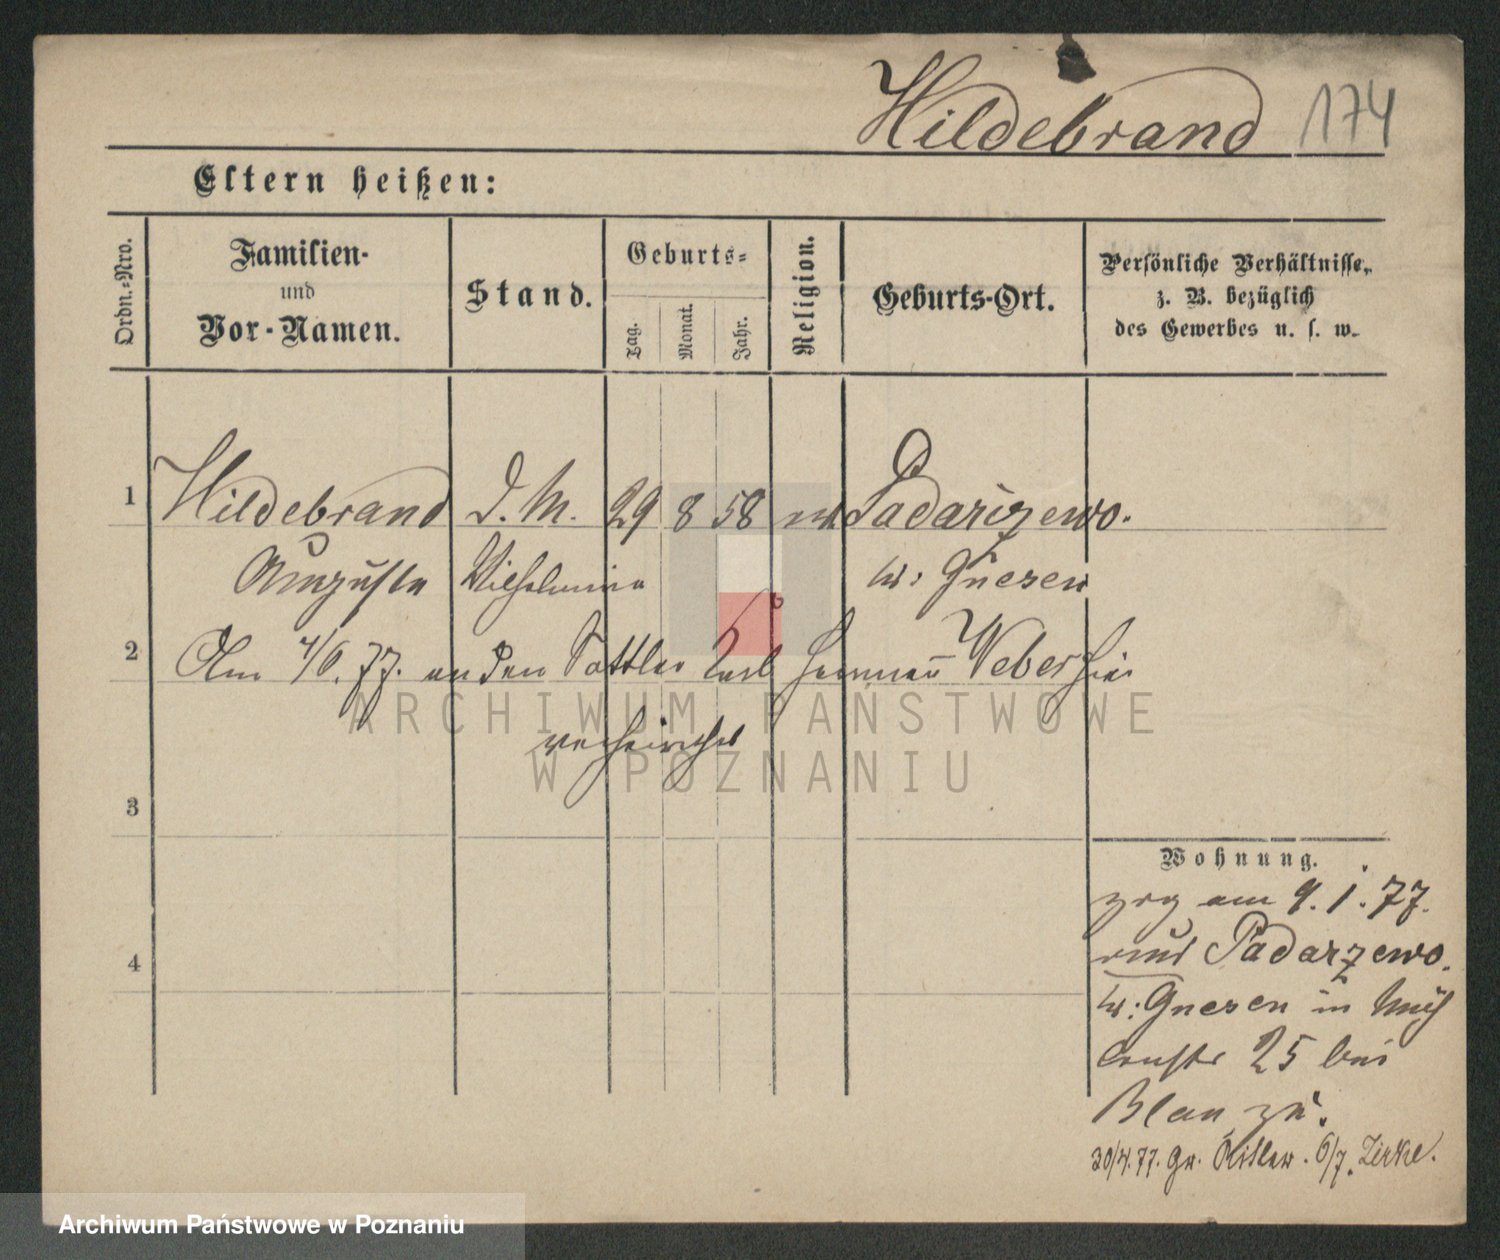 Hildebrand 174
Eltern heißen:
Ordn.-Nro.
Familien-
und
Vor-Namen.
Stand.
Geburts-
Tag. Monat. Jahr.
Religion.
Geburts-Ort.
Persönliche Verhältnisse,
z. B. bezüglich
des Gewerbes u. s. w.
1 Hildebrand D. M. 29 8 58 Padarizewo.
Auguste Wilhelmine Kr: Gnesen
2 Am 7/6. 77. an den Sattler Carl Herman̄ Weber hier
verheirathet
ARCHIWUM PAŃSTWOWE
W POZNANIU
3
4
Wohnung.
zog am 9. 1. 77.
aus Padarzewo.
Kr: Gnesen in
25 bei
Blau zu.
30/4. 77. Gr. Ritter. 6/7.
Archiwum Państwowe w Poznaniu